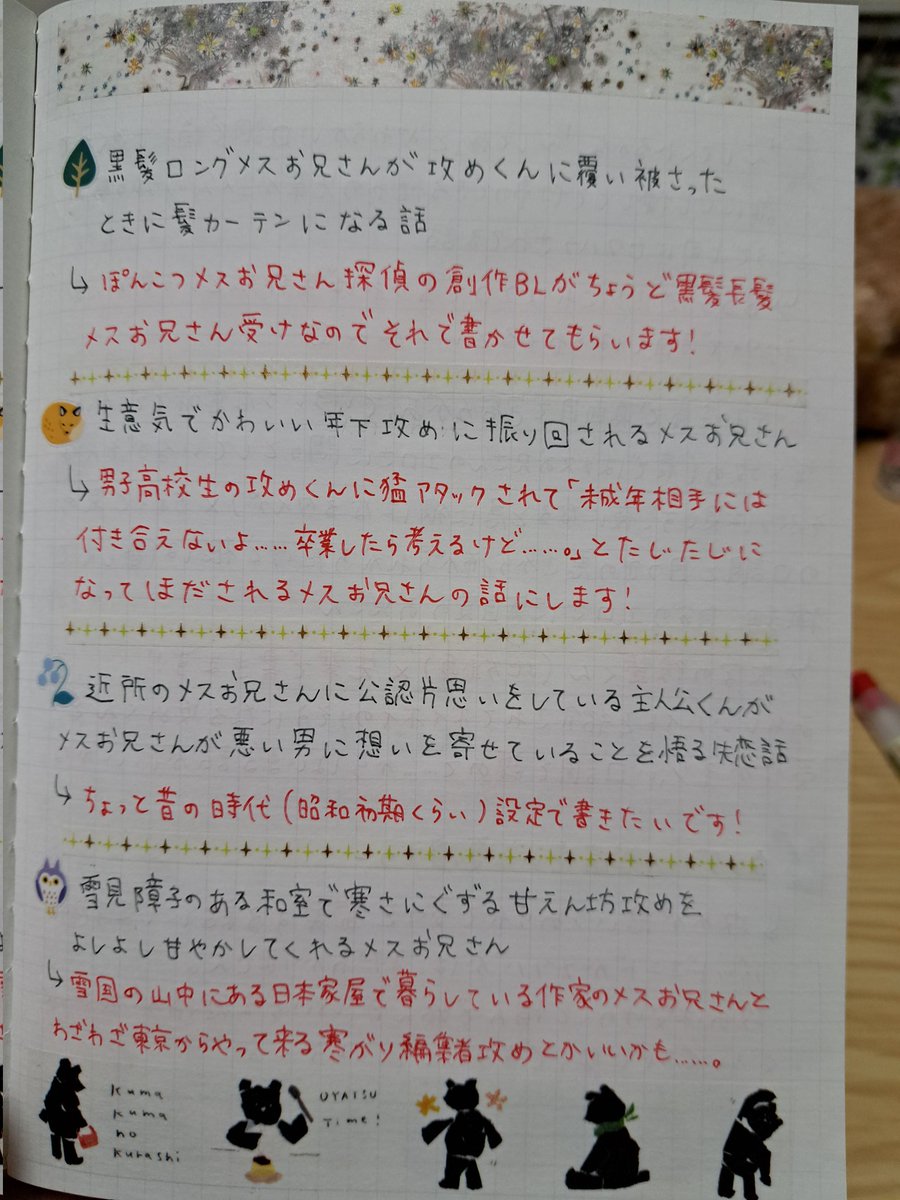 黒髪ロングメスお兄さんが攻めくんに覆い被さった
ときに髪カーテンになる話
↳ ぽんこつメスお兄さん探偵の創作BLがちょうど黒髪長髪
メスお兄さん受けなのでそれで書かせてもらいます!
生意気でかわいい年下攻めに振り回されるメスお兄さん
↳ 男子高校生の攻めくんに猛アタックされて「未成年相手には
付き合えないよ……卒業したら考えるけど……。」とたじたじに
なってほだされるメスお兄さんの話にします!
近所のメスお兄さんに公認片思いをしている主人公くんが
メスお兄さんが悪い男に想いを寄せていることを悟る失恋話
↳ ちょっと昔の時代(昭和初期くらい)設定で書きたいです!
雪見障子のある和室で寒さにぐずる甘えん坊攻めを
よしよし甘やかしてくれるメスお兄さん
↳ 雪国の山中にある日本家屋で暮らしている作家のメスお兄さんと
わざわざ東京からやって来る寒がり編集者攻めとかいいかも……。
kuma
kuma
no
kurashi
OYATSU
Time!